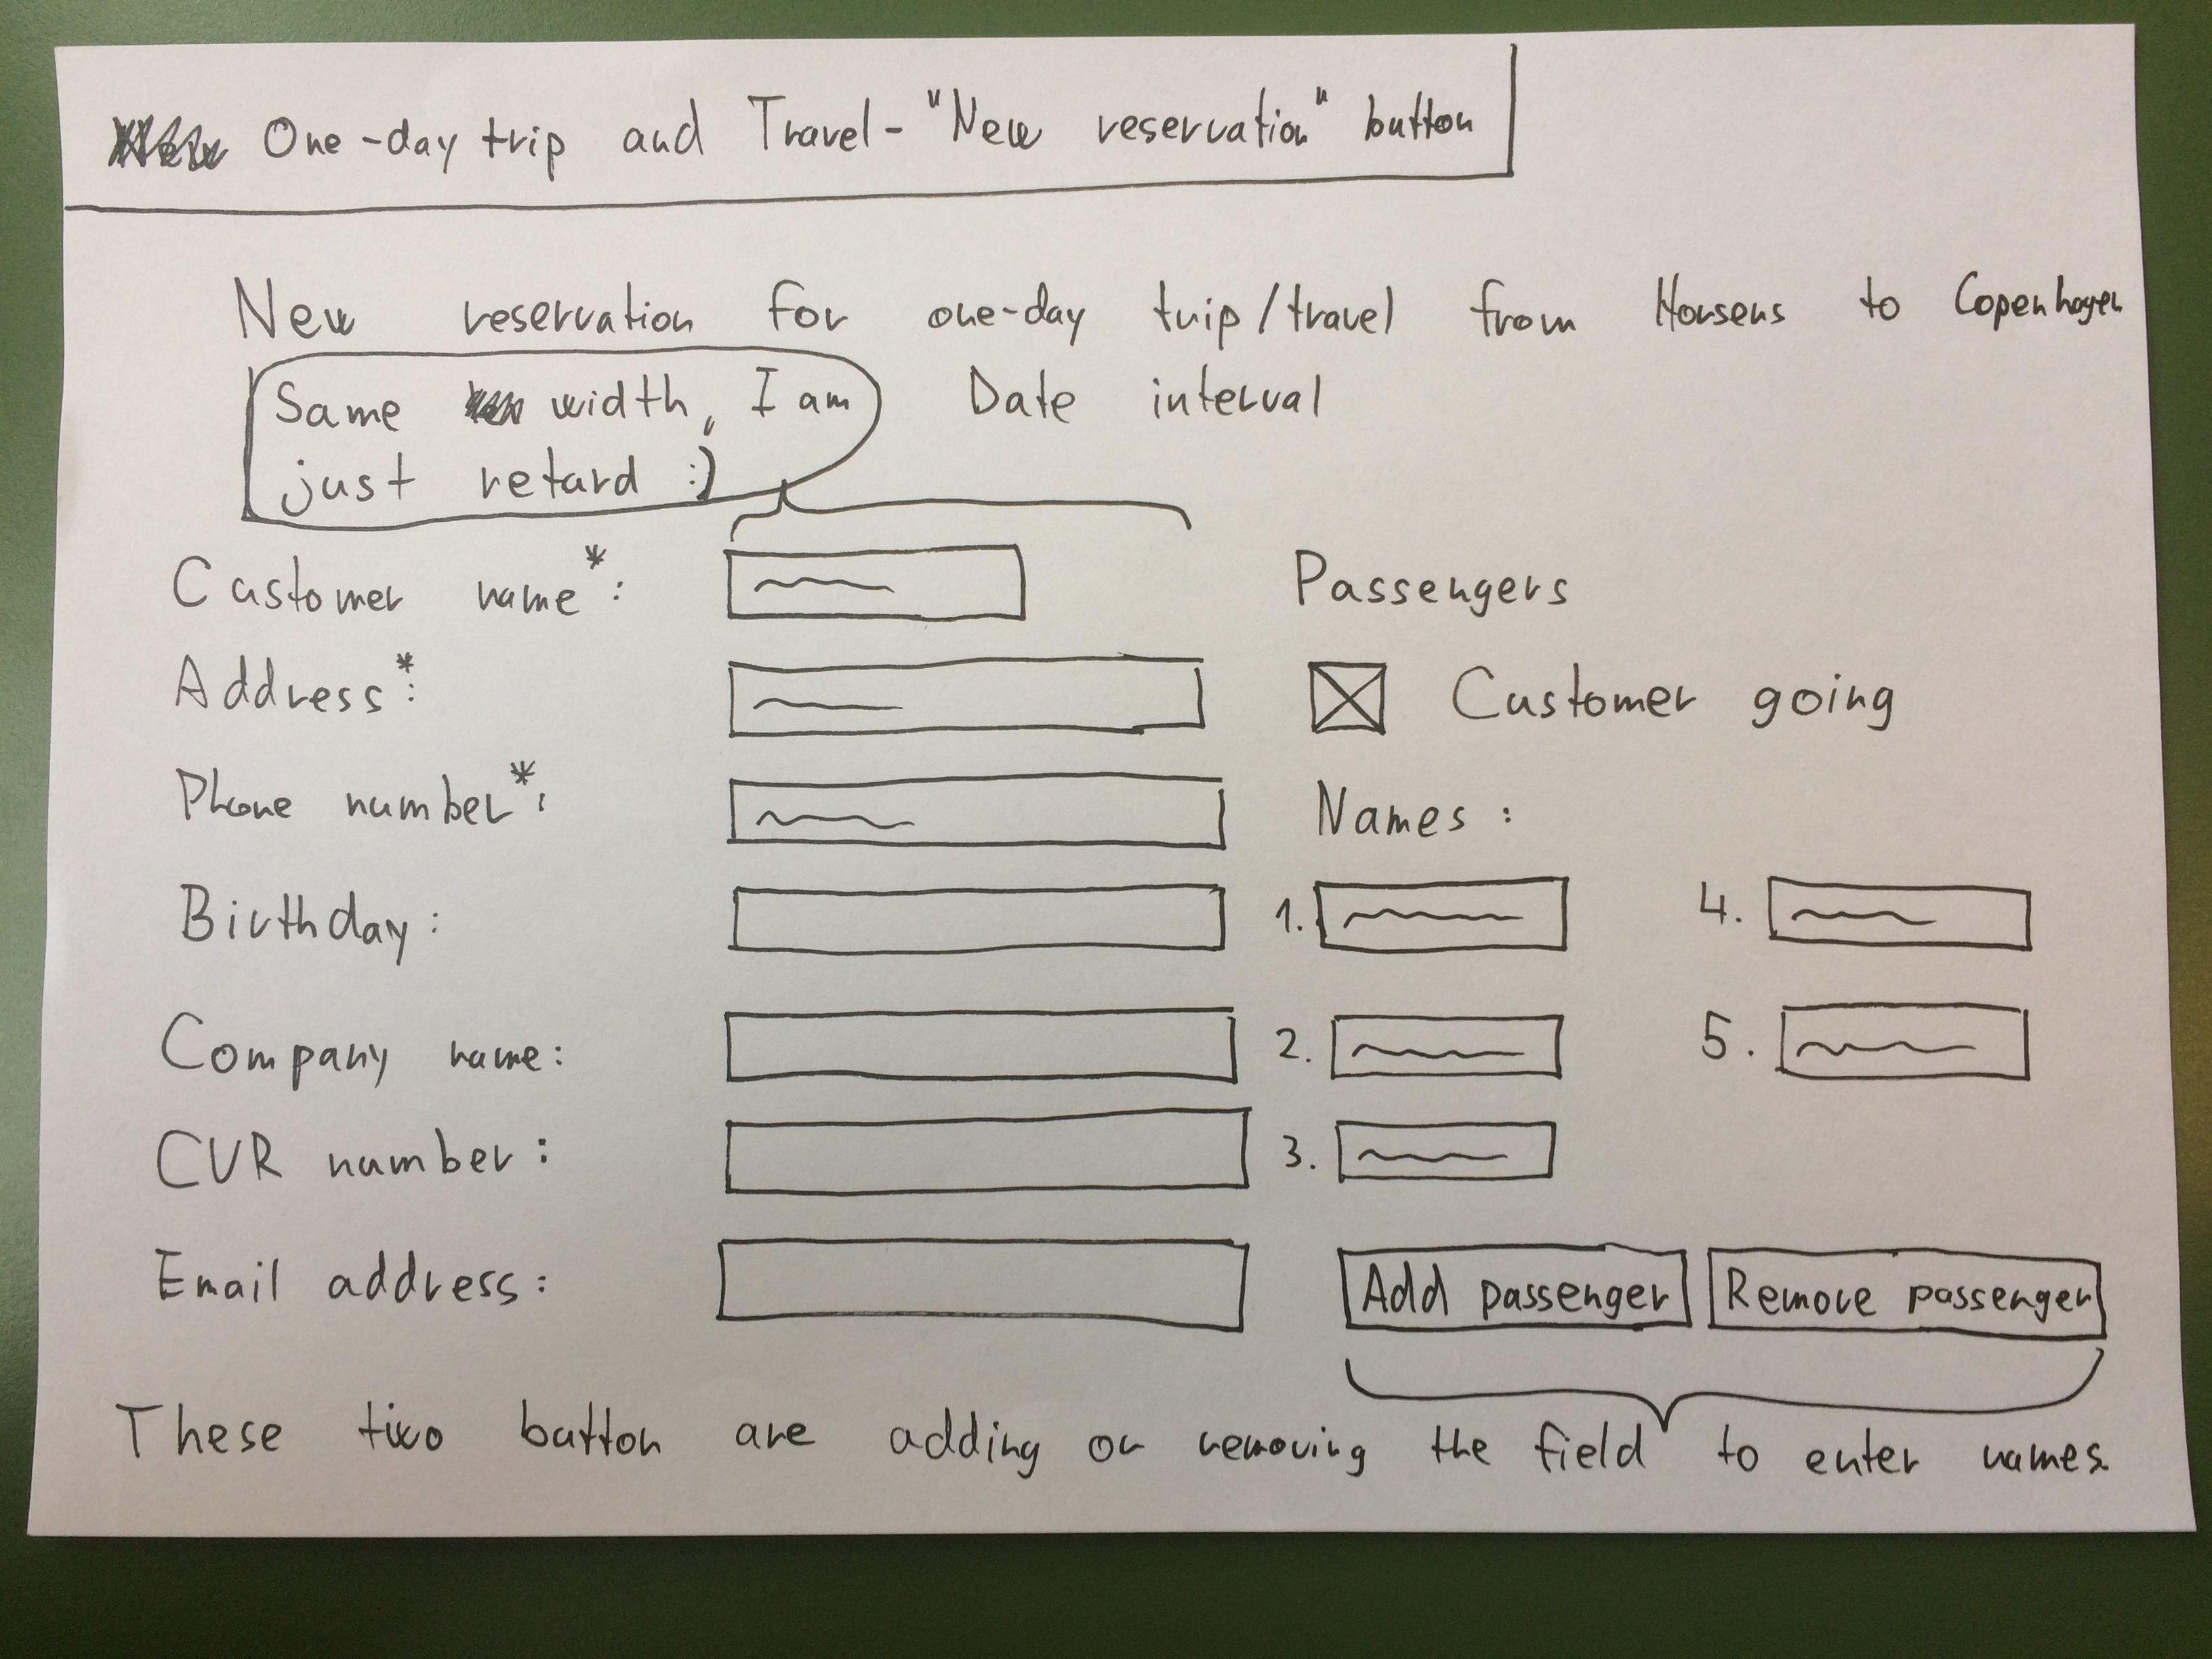 One-day trip and Travel - "New reservation" button
New reservation for one-day trip/travel from Horsens to Copenhagen
Same width, I am
just retard :)
Date interval
Customer name*:
Address*:
Phone number*:
Birthday:
Company name:
CVR number:
Email address:
Passengers
Customer going
Names:
1.
2.
3.
4.
5.
Add passenger
Remove passenger
These two button are adding or removing the field to enter names.